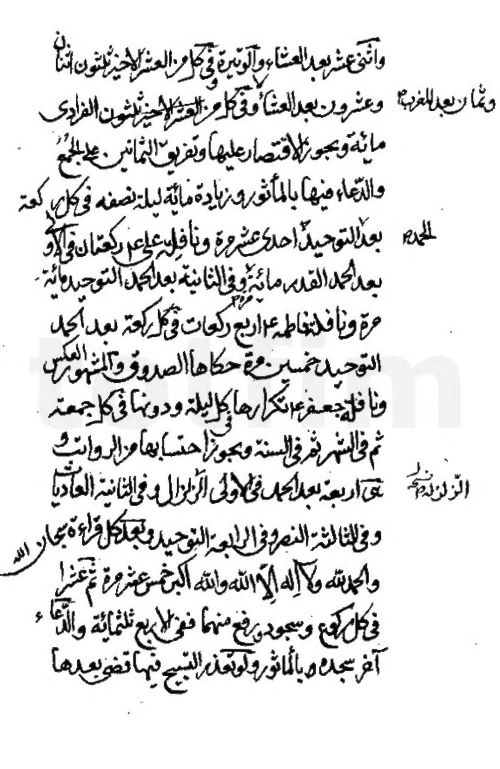 واثنى عشر بعد العشاء والوتيرة وفى كل من العشر الاخير ثلثون اثنتان
وعشرون بعد العشاء وفى كل من العشر الاخير ثلثون الفرادى
وثمان بعد المغرب
مائة ويجوز الاقتصار عليها وتفريق الثمانين على الجمع
والدعاء فيها بالمأثور وزيادة مائة ليلة نصفه فى كل ركعة
بعد التوحيد احدى عشر مرة ونافلة على ع ركعتان فى الاولى
الحمد
بعد الحمد القدر مائة وفى الثانية بعد الحمد التوحيد مائة
مرة ونافلة فاطمة ع اربع ركعات فى كل ركعة بعد الحمد
التوحيد خمسين مرة حكاها الصدوق والمشهور العكس
ونافلة جعفر ع تكرارها كل ليلة ودونها فى كل جمعة
ثم فى الشهر ثم فى السنة ويجوز احتسابها من الرواتب و
هى اربعة بعد الحمد فى الاولى الزلزال وفى الثانية العاديات
الزلزلة نسخه
وفى الثالثة النصر وفى الرابعة التوحيد وبعد كل قراءة سبحان الله
والحمد لله ولا اله الا الله والله اكبر خمس عشر مرة ثم عشرا
فى كل ركوع وسجود ورفع منهما ففى الاربع ثلثمائة والدعاء
آخر سجدة بالمأثور ولو تعذر التسبيح فيها قضى بعدها